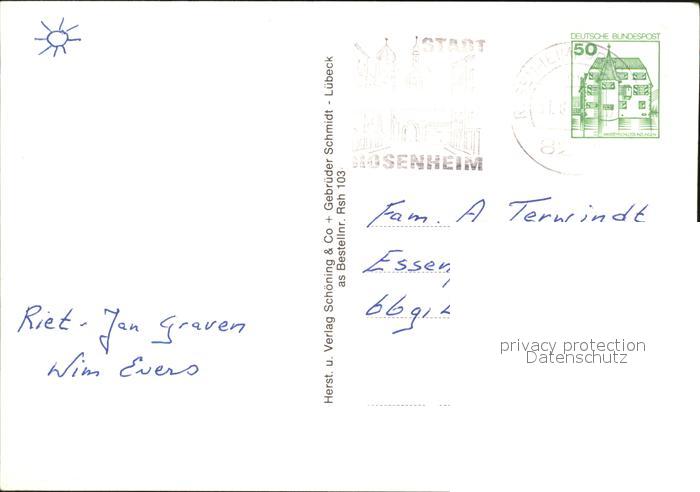 STADT
ROSENHEIM
DEUTSCHE BUNDESPOST
50
82
Riet - Jan Graven
Wim Evers
Herst. u. Verlag Schöning & Co + Gebrüder Schmidt - Lübeck
as Bestellnr. Rsh 103
Fam. A Terwindt
Essen
privacy protection
Datenschutz